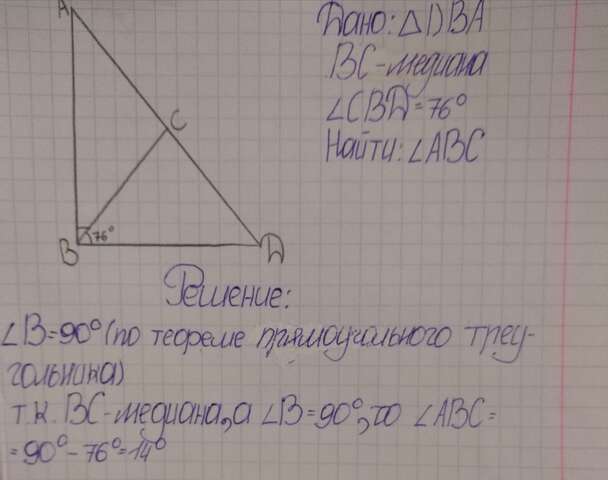 A
C
B
76°
D
Дано: △DBA
BC - медиана
∠CBD = 76°
Найти: ∠ABC
Решение:
∠B = 90° (по теореме прямоугольного треу-
гольника)
т.к. BC - медиана, а ∠B = 90°, то ∠ABC =
= 90° - 76° = 14°